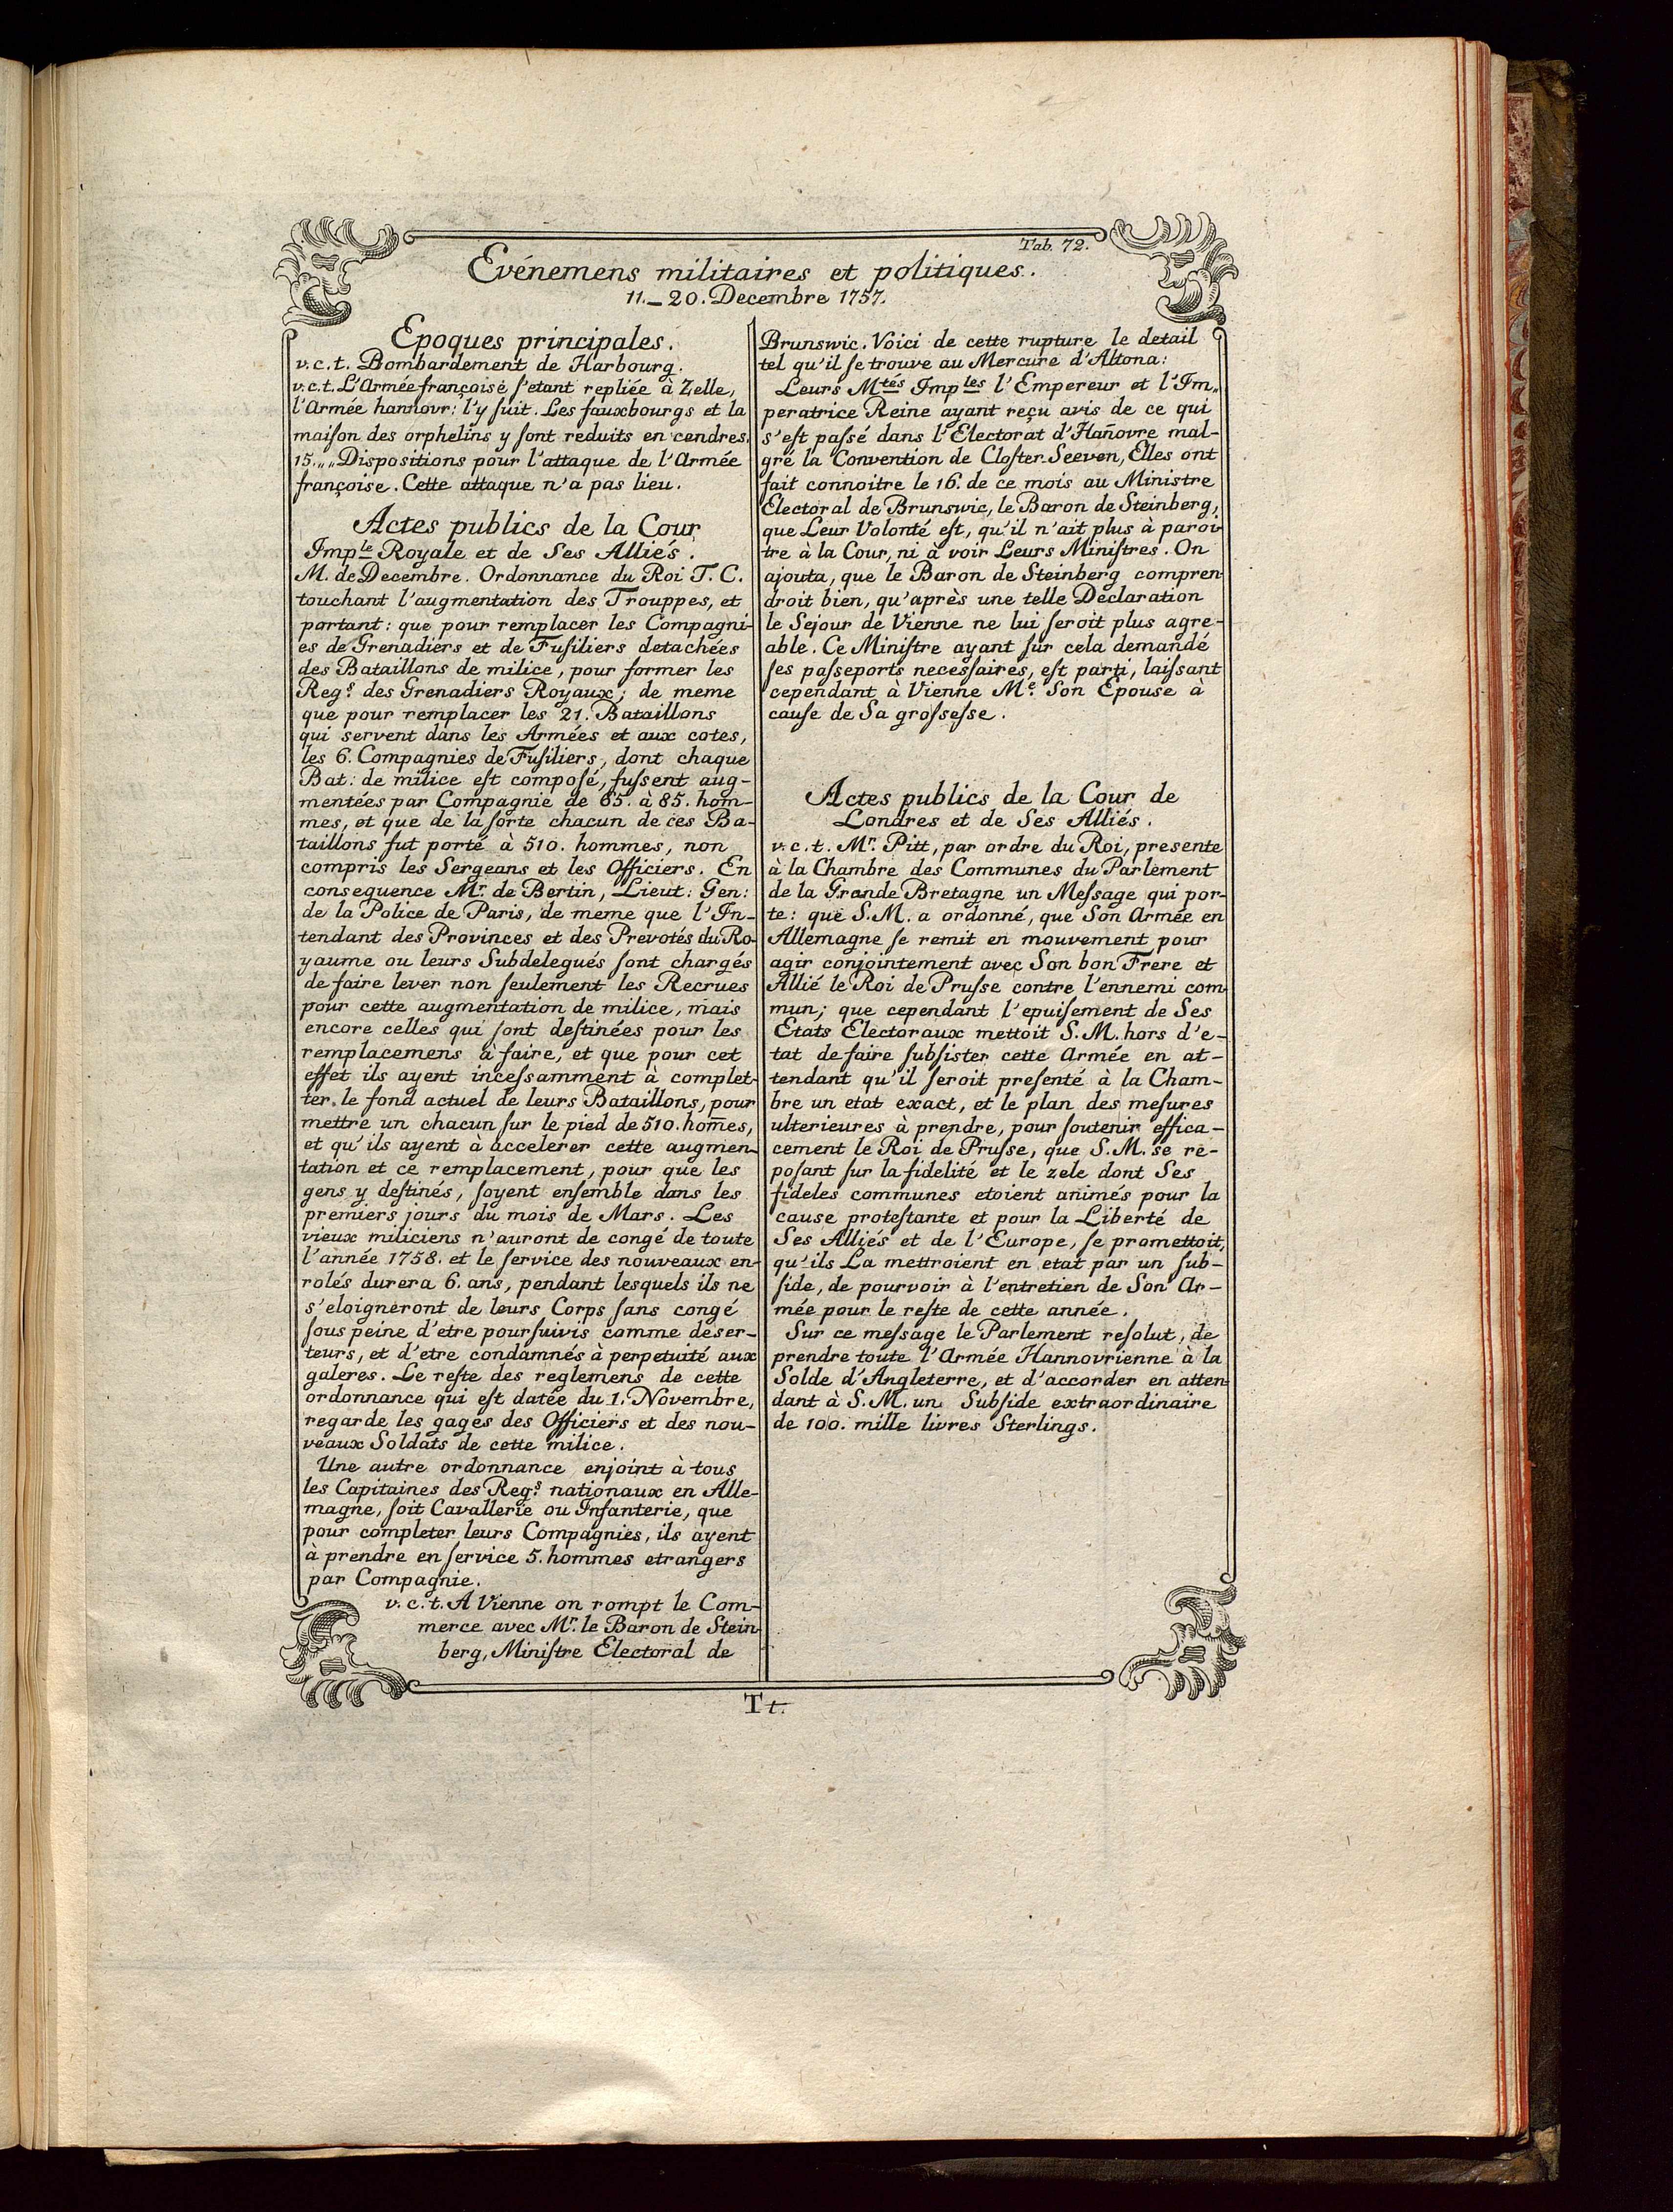 Tab. 72.
Evénemens militaires et politiques.
11.–20. Decembre 1757.
Epoques principales.
v.c.t. Bombardement de Harbourg.
v.c.t. L'Armée françoise ſ'etant repliée à Zelle,
l'Armée hannovr: l'y ſuit. Les fauxbourgs et la
maiſon des orphelins y ſont reduits en cendres.
15.„„ Dispositions pour l'attaque de l'Armée
françoise. Cette attaque n'a pas lieu.
Actes publics de la Cour
Imp.le Royale et de Ses Alliés.
M. de Decembre. Ordonnance du Roi T. C.
touchant l'augmentation des Trouppes, et
portant: que pour remplacer les Compagni-
es de Grenadiers et de Fuſiliers detachées
des Bataillons de milice, pour former les
Reg.s des Grenadiers Royaux; de meme
que pour remplacer les 21. Bataillons
qui servent dans les Armées et aux cotes,
les 6. Compagnies de Fuſiliers, dont chaque
Bat: de milice eſt compoſé, fuſsent aug-
mentées par Compagnie de 65. à 85. hom-
mes, et que de la ſorte chacun de ces Ba-
taillons fut porté à 510. hommes, non
compris les Sergeans et les Officiers. En
consequence Mr. de Bertin, Lieut: Gen:
de la Police de Paris, de meme que l'In-
tendant des Provinces et des Prevotés du Ro-
yaume ou leurs Subdelegués ſont chargés
de faire lever non ſeulement les Recrues
pour cette augmentation de milice, mais
encore celles qui ſont deſtinées pour les
remplacemens à faire, et que pour cet
effet ils ayent inceſsamment à complet-
ter le fond actuel de leurs Bataillons, pour
mettre un chacun ſur le pied de 510. hom̄es,
et qu'ils ayent à accelerer cette augmen-
tation et ce remplacement, pour que les
gens y deſtinés, ſoyent enſemble dans les
premiers jours du mois de Mars. Les
vieux miliciens n'auront de congé de toute
l'année 1758. et le ſervice des nouveaux en-
rolés durera 6. ans, pendant lesquels ils ne
s'eloigneront de leurs Corps ſans congé
ſous peine d'etre pourſuivis comme deser-
teurs, et d'etre condamnés à perpetuité aux
galeres. Le reſte des reglemens de cette
ordonnance qui eſt datée du 1. Novembre,
regarde les gages des Officiers et des nou-
veaux Soldats de cette milice.
Une autre ordonnance enjoint à tous
les Capitaines des Reg.s nationaux en Alle-
magne, ſoit Cavallerie ou Infanterie, que
pour completer leurs Compagnies, ils ayent
à prendre en ſervice 5. hommes etrangers
par Compagnie.
v. c. t. A Vienne on rompt le Com-
merce avec Mr. le Baron de Stein-
berg, Miniſtre Electoral de
Brunswic. Voici de cette rupture le detail
tel qu'il ſe trouve au Mercure d'Altona:
Leurs Mtés Imples l'Empereur et l'Im„
peratrice Reine ayant reçu avis de ce qui
s'eſt paſsé dans l'Electorat d'Han̄ovre mal-
gré la Convention de Cloſter-Seeven, Elles ont
fait connoitre le 16. de ce mois au Ministre
Electoral de Brunswic, le Baron de Steinberg,
que Leur Volonté eſt, qu'il n'ait plus à paroi-
tre à la Cour, ni à voir Leurs Miniſtres. On
ajouta, que le Baron de Steinberg compren-
droit bien, qu'après une telle Declaration
le Sejour de Vienne ne lui ſeroit plus agre-
able. Ce Miniſtre ayant ſur cela demandé
ſes paſseports neceſsaires, eſt parti, laiſsant
cependant à Vienne Me. Son Epouse à
cauſe de Sa groſseſse.
Actes publics de la Cour de
Londres et de Ses Alliés.
v. c. t. Mr. Pitt, par ordre du Roi, presente
à la Chambre des Communes du Parlement
de la Grande Bretagne un Meſsage qui por-
te: que S.M. a ordonné, que Son Armée en
Allemagne ſe remit en mouvement pour
agir conjointement avec Son bon Frere et
Allié le Roi de Pruſse contre l'ennemi com-
mun; que cependant l'epuiſement de Ses
Etats Electoraux mettoit S.M. hors d'e-
tat de faire ſubſister cette Armée en at-
tendant qu'il ſeroit preſenté à la Cham-
bre un etat exact, et le plan des meſures
ulterieures à prendre, pour ſoutenir effica-
cement le Roi de Pruſse, que S.M. se re-
poſant ſur la fidelité et le zele dont Ses
fideles communes etoient animés pour la
cause proteſtante et pour la Liberté de
Ses Alliés et de l'Europe, ſe promettoit,
qu'ils La mettroient en etat par un ſub-
ſide, de pourvoir à l'entretien de Son Ar-
mée pour le reſte de cette année.
Sur ce meſsage le Parlement reſolut, de
prendre toute l'Armée Hannovrienne à la
Solde d'Angleterre, et d'accorder en atten-
dant à S.M. un Subſide extraordinaire
de 100. mille livres Sterlings.
Tt.